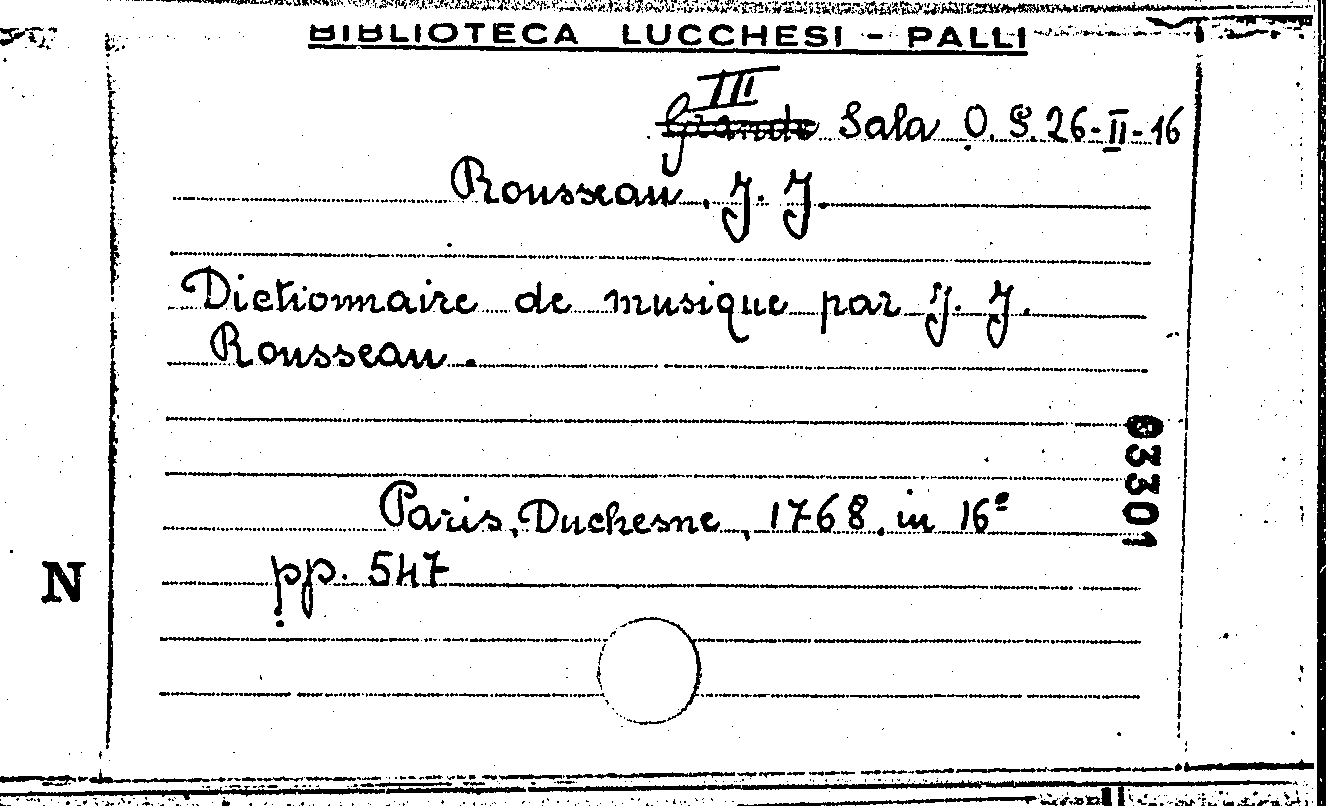 BIBLIOTECA LUCCHESI - PALLI
III
Grande Sala O. S. 26-II-16
Rousseau, J. J.
Dictionnaire de musique par J. J.
Rousseau.
Paris, Duchesne, 1768, in 16º
pp. 547
03301
N